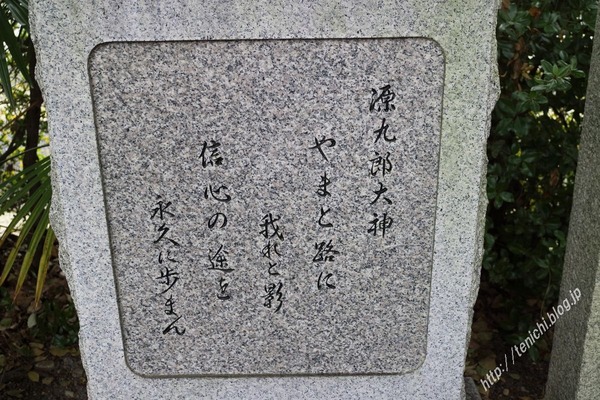 源九郎大神
やまと路に
我れと影
信心の途を
永久に歩まん
http://tenichi.blog.jp